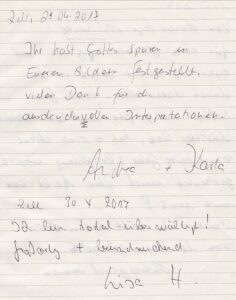 Zell, 29.04.2017
Ihr habt Gottes Spuren in
Euren Bildern festgestellt,
vielen Dank für die
ausdrucksvollen Interpretationen.
Andrea + Karla
Zell 30 4 2017
Ich bin total überwältigt!
+
Lisa H.